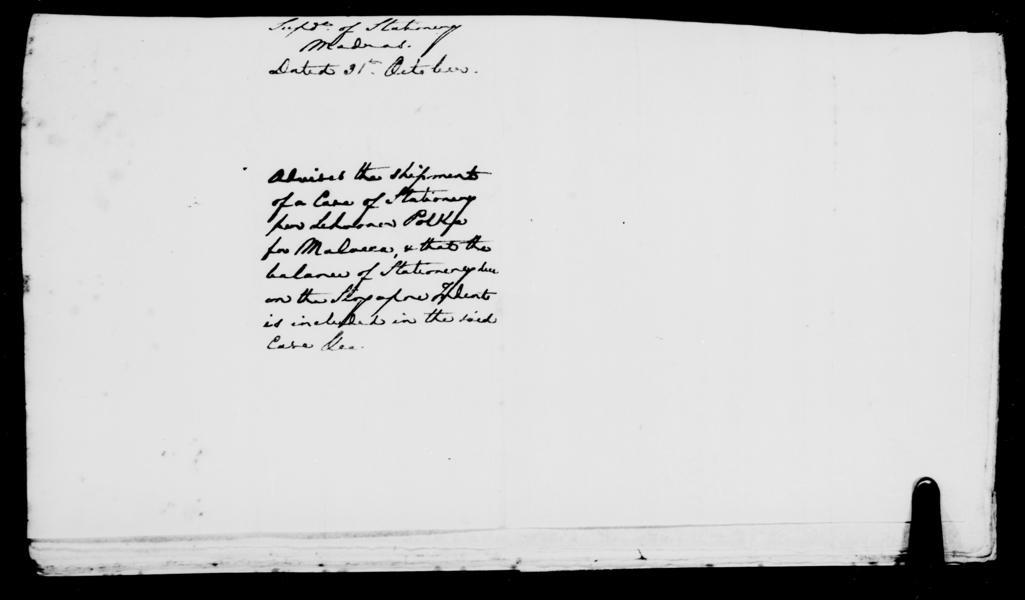 Supdt. of Stationery
Madras.
Dated 31st October.
Advises the shipment
of a Case of Stationery
per Schooner Polka
for Malacca, & that the
balance of Stationery due
on the Singapore Indent
is included in the said
Case &ca.